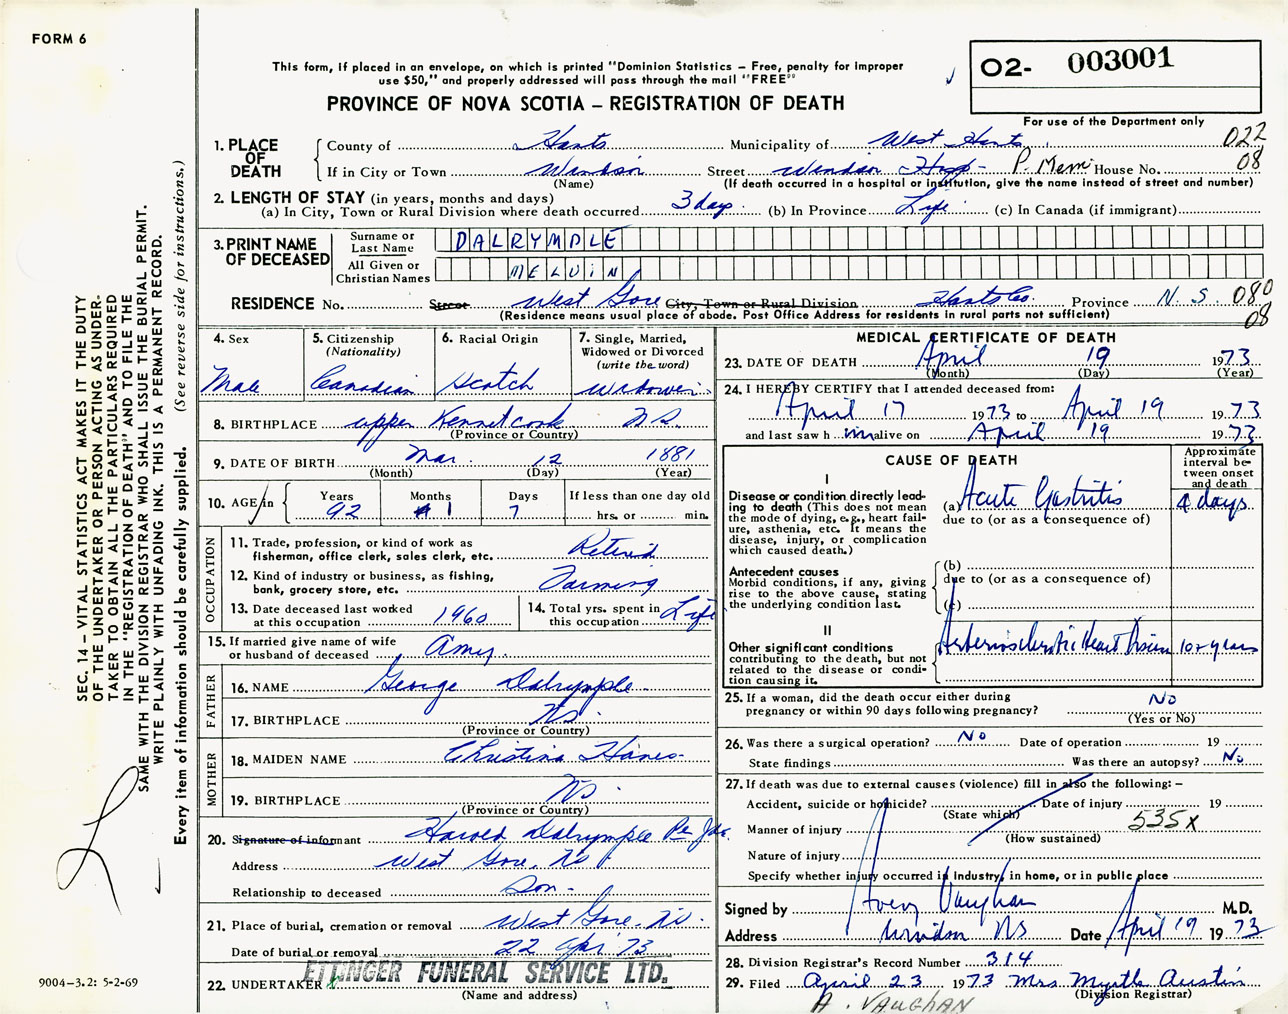 FORM 6
This form, if placed in an envelope, on which is printed "Dominion Statistics – Free, penalty for improper
use $50," and properly addressed will pass through the mail "FREE"
O2- 003001
PROVINCE OF NOVA SCOTIA – REGISTRATION OF DEATH
For use of the Department only
1. PLACE OF DEATH County of Hants Municipality of West Hants 022
If in City or Town Windsor Street Windsor Hosp- P. Mem House No. 08
(Name) (If death occurred in a hospital or institution, give the name instead of street and number)
2. LENGTH OF STAY (in years, months and days)
(a) In City, Town or Rural Division where death occurred 3 days (b) In Province Life (c) In Canada (if immigrant)
3. PRINT NAME OF DECEASED Surname or Last Name DALRYMPLE
All Given or Christian Names MELVIN
RESIDENCE No. Street West Gore City, Town or Rural Division Hants Co. Province N.S. 080
(Residence means usual place of abode. Post Office Address for residents in rural parts not sufficient) 08
4. Sex Male
5. Citizenship (Nationality) Canadian
6. Racial Origin Scotch
7. Single, Married, Widowed or Divorced (write the word) Widower
8. BIRTHPLACE upper Kennetcook N.S.
(Province or Country)
9. DATE OF BIRTH Mar. 12 1881
(Month) (Day) (Year)
10. AGE in Years 92 Months 1 Days 7 If less than one day old hrs. or min.
OCCUPATION
11. Trade, profession, or kind of work as
fisherman, office clerk, sales clerk, etc. Retired
12. Kind of industry or business, as fishing,
bank, grocery store, etc. Farming
13. Date deceased last worked
at this occupation 1960
14. Total yrs. spent in
this occupation Life
15. If married give name of wife
or husband of deceased Amy
FATHER
16. NAME George Dalrymple
17. BIRTHPLACE NS.
(Province or Country)
MOTHER
18. MAIDEN NAME Christina
19. BIRTHPLACE NS.
(Province or Country)
20. Signature of informant Harold Dalrymple Per
Address West Gore, NS
Relationship to deceased Son-
21. Place of burial, cremation or removal West Gore, NS.
Date of burial or removal 22 Apr. 73
22. UNDERTAKER ETTINGER FUNERAL SERVICE LTD.
(Name and address)
MEDICAL CERTIFICATE OF DEATH
23. DATE OF DEATH April 19 1973
(Month) (Day) (Year)
24. I HEREBY CERTIFY that I attended deceased from:
April 17 1973 to April 19 1973
and last saw h im alive on April 19 1973
CAUSE OF DEATH
Approximate interval between onset and death
I
Disease or condition directly leading to death (This does not mean the mode of dying, e.g., heart failure, asthenia, etc. it means the disease, injury, or complication which caused death.)
(a) Acute Gastritis 4 days
due to (or as a consequence of)
Antecedent causes
Morbid conditions, if any, giving rise to the above cause, stating the underlying condition last.
(b)
due to (or as a consequence of)
(c)
II
Other significant conditions
contributing to the death, but not related to the disease or condition causing it.
Arteriosclerotic Heart Disease 10+ years
25. If a woman, did the death occur either during
pregnancy or within 90 days following pregnancy? No
(Yes or No)
26. Was there a surgical operation? No Date of operation 19
State findings Was there an autopsy? No
27. If death was due to external causes (violence) fill in also the following:–
Accident, suicide or homicide? Date of injury 19
(State which)
Manner of injury 535X
(How sustained)
Nature of injury
Specify whether injury occurred in Industry, in home, or in public place
Signed by Avery Vaughan M.D.
Address Windsor NS Date April 19 1973
28. Division Registrar's Record Number 314
29. Filed April 23 1973 Mrs Myrtle Austin
(Division Registrar)
A. VAUGHAN
SEC. 14 – VITAL STATISTICS ACT MAKES IT THE DUTY
OF THE UNDERTAKER OR PERSON ACTING AS UNDER-
TAKER TO OBTAIN ALL THE PARTICULARS REQUIRED
IN THE "REGISTRATION OF DEATH" AND TO FILE THE
SAME WITH THE DIVISION REGISTRAR WHO SHALL ISSUE THE BURIAL PERMIT.
WRITE PLAINLY WITH UNFADING INK. THIS IS A PERMANENT RECORD.
Every item of information should be carefully supplied. (See reverse side for instructions.)
9004-3.2: 5-2-69